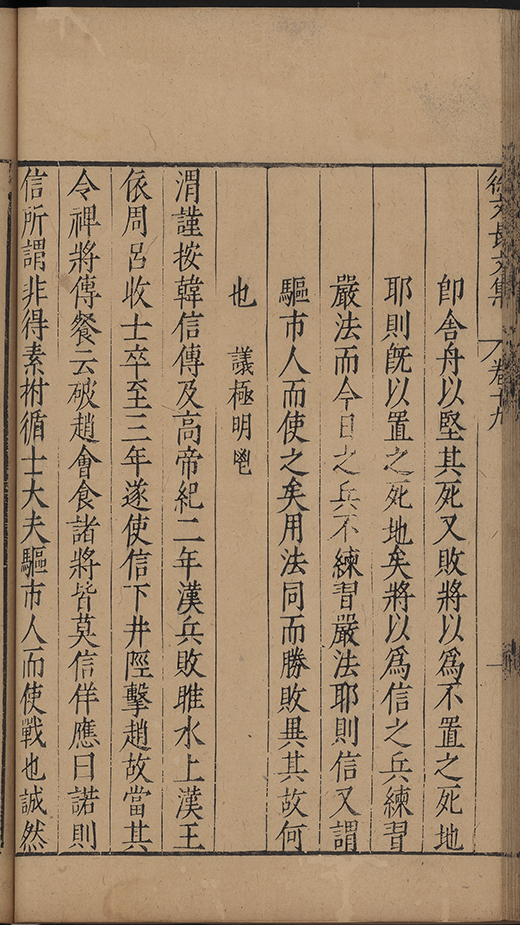 徐文長文集 卷十九
卽舍舟以堅其死又敗將以爲不置之死地
耶則旣以置之死地矣將以爲信之兵練習
嚴法而今日之兵不練習嚴法耶則信又謂
驅市人而使之矣用法同而勝敗異其故何
也 議極明鬯
渭謹按韓信傳及高帝紀二年漢兵敗睢水上漢王
依周呂收士卒至三年遂使信下井陘擊趙故當其
令裨將傳餐云破趙會食諸將皆莫信佯應曰諾則
信所謂非得素拊循士大夫驅市人而使戰也誠然